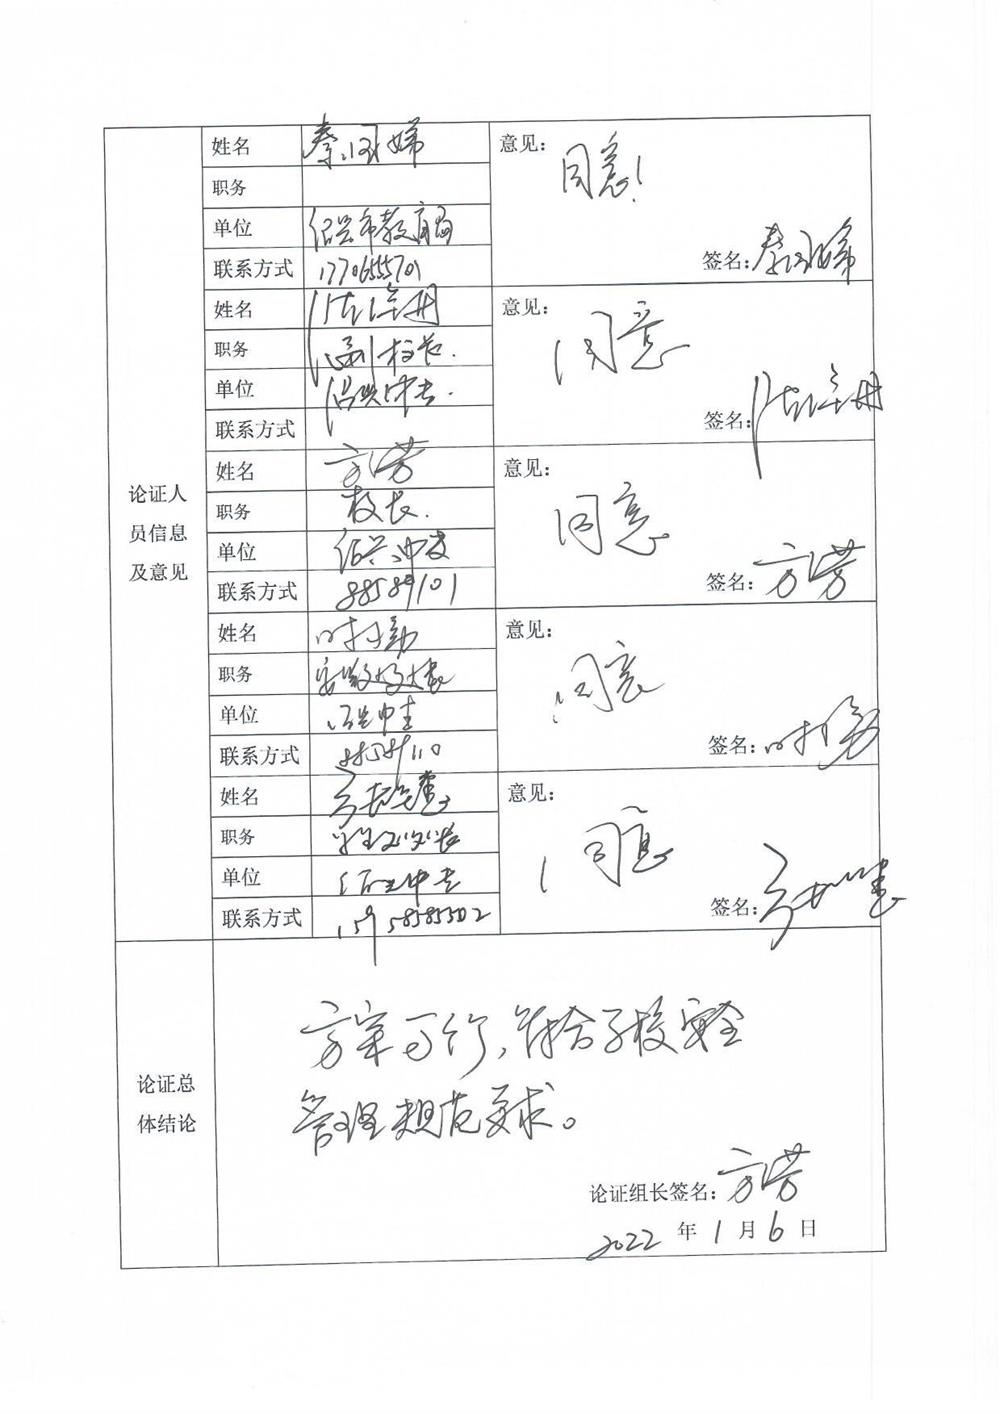 姓名 意见：
同意！
职务
单位 绍兴市教育局
联系方式 17706555701 签名：
姓名 意见：
同意
职务 副校长.
单位 绍兴中专.
联系方式 签名：
姓名 方芳 意见：
同意
职务 校长.
单位 绍兴中专
联系方式 88589101 签名：方芳
论证人
员信息
及意见
姓名 意见：
同意
职务
单位 绍兴中专
联系方式 88589110 签名：
姓名 意见：
同意
职务
单位 绍兴中专
联系方式 15958585302 签名：
论证总
体结论
方案可行，符合学校安全
管理规范要求。
论证组长签名：方芳
2022 年 1 月 6 日